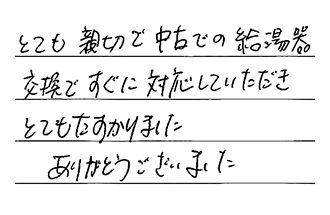 とても 親切で 中古での 給湯器
交換で すぐに 対応していただき
とてもたすかりました
ありがとうございました